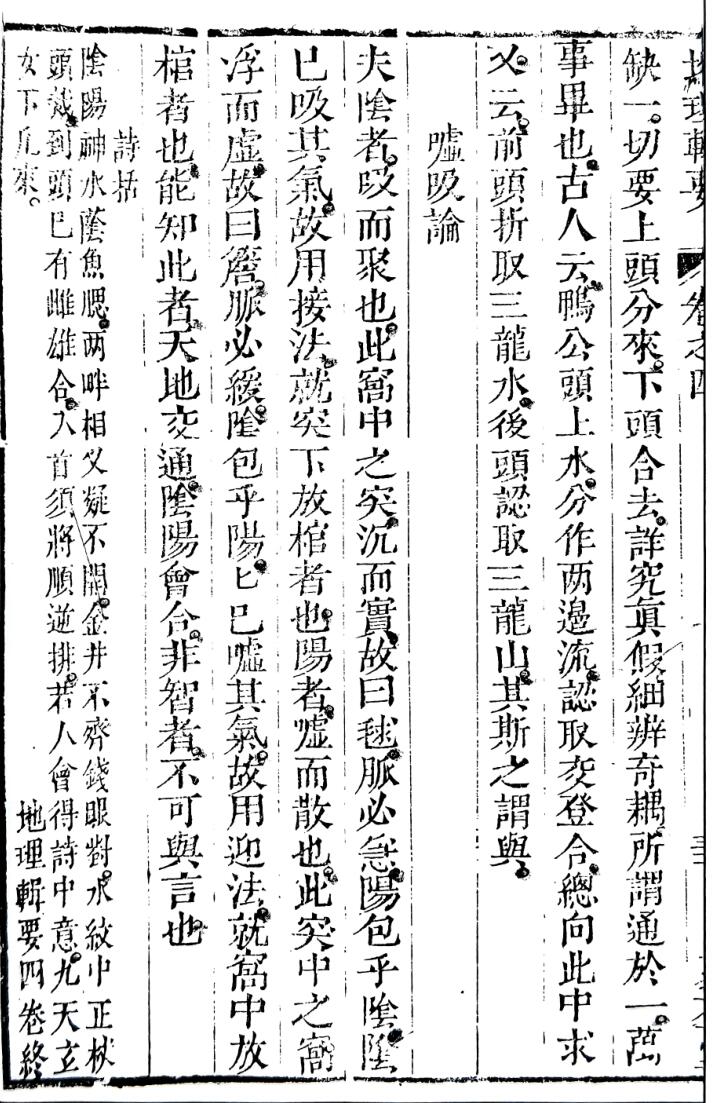 地理輯要 卷之四
缺一。切要上頭分來。下頭合去。詳究眞假。細辨奇耦。所謂通於一。萬
事畢也。古人云。鴨公頭上水。分作两邉流。認取交登合。總向此中求。
又云。前頭折取三龍水。後頭認取三龍山。其斯之謂與。
噓吸論
夫陰者。吸而聚也。此窩中之突。沉而實。故曰毬。脈必急。陽包乎陰。陰
已吸其氣。故用接法。就突下放棺者也。陽者。噓而散也。此突中之窩。
浮而虛。故曰簷。脈必緩。陰包乎陽。匕已噓其氣。故用迎法。就窩中放
棺者也。能知此者。天地交通。陰陽會合。非智者。不可與言也。
詩括
陰陽神水蔭魚腮。两畔相乂疑不開。金井不齊錢眼對。水紋中正棫
頭戴。到頭已有雌雄合。入首須將順逆排。若人會得詩中意。九天玄
女下凡來。
地理輯要四卷終